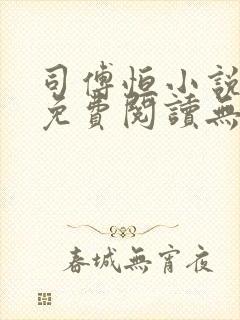 司傅恒小說
免費閱讀無
春城無宵夜